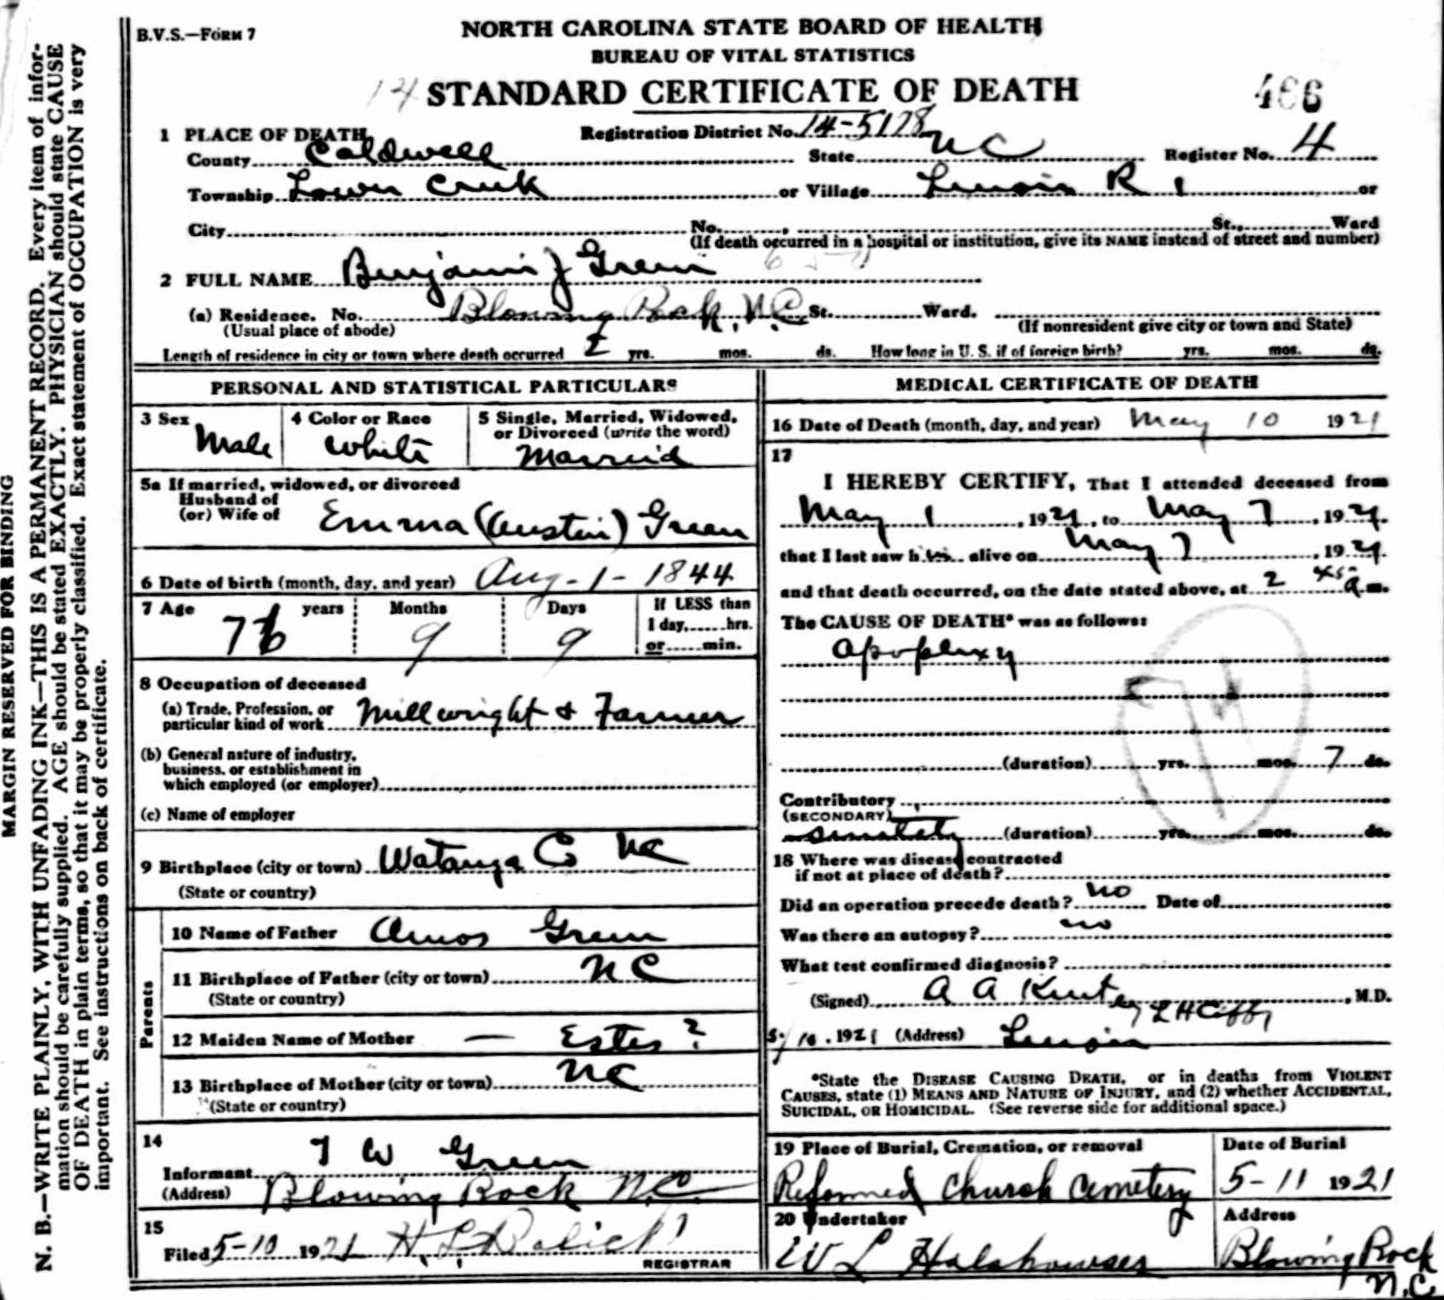 B.V.S.—FORM 7
NORTH CAROLINA STATE BOARD OF HEALTH
BUREAU OF VITAL STATISTICS
14 STANDARD CERTIFICATE OF DEATH 466
1 PLACE OF DEATH Registration District No. 14-5178
County Caldwell State NC Register No. 4
Township Lower Creek or Village Lenoir R 1 or
City No. , St., Ward
(If death occurred in a hospital or institution, give its NAME instead of street and number)
2 FULL NAME Benjamin J Green
(a) Residence. No. Blowing Rock, N.C. St. Ward.
(Usual place of abode) (If nonresident give city or town and State)
Length of residence in city or town where death occurred yrs. mos. ds. How long in U. S. if of foreign birth? yrs. mos. ds.
PERSONAL AND STATISTICAL PARTICULARS
3 Sex Male
4 Color or Race White
5 Single, Married, Widowed, or Divorced (write the word)
Married
5a If married, widowed, or divorced
Husband of
(or) Wife of Emma (Austin) Green
6 Date of birth (month, day, and year) Aug-1-1844
7 Age 76 years Months 9 Days 9 If LESS than
1 day, hrs.
or min.
8 Occupation of deceased
(a) Trade, Profession, or
particular kind of work Millwright & Farmer
(b) General nature of industry,
business, or establishment in
which employed (or employer)
(c) Name of employer
9 Birthplace (city or town) Watauga Co NC
(State or country)
Parents
10 Name of Father Amos Green
11 Birthplace of Father (city or town) NC
(State or country)
12 Maiden Name of Mother — Estes ?
13 Birthplace of Mother (city or town) NC
(State or country)
14
Informant T W Green
(Address) Blowing Rock N.C.
15
Filed 5-10 1921
REGISTRAR
MEDICAL CERTIFICATE OF DEATH
16 Date of Death (month, day, and year) May 10 1921
17
I HEREBY CERTIFY, That I attended deceased from
May 1, 1921, to May 7, 1921.
that I last saw him alive on May 7, 1921
and that death occurred, on the date stated above, at 2 45 a m.
The CAUSE OF DEATH* was as follows:
Apoplexy
(duration) yrs. mos. 7 ds.
Contributory
(SECONDARY)
(duration) yrs. mos. ds.
18 Where was disease contracted
if not at place of death?
Did an operation precede death? no Date of
Was there an autopsy? no
What test confirmed diagnosis?
(Signed) A A Kent , M.D.
5/10, 1921 (Address) Lenoir
*State the DISEASE CAUSING DEATH, or in deaths from VIOLENT
CAUSES, state (1) MEANS AND NATURE OF INJURY, and (2) whether ACCIDENTAL,
SUICIDAL, OR HOMICIDAL. (See reverse side for additional space.)
19 Place of Burial, Cremation, or removal
Reformed Church Cemetery
Date of Burial
5-11 1921
20 Undertaker
W L Holshouser
Address
Blowing Rock
N.C.
MARGIN RESERVED FOR BINDING
N. B.—WRITE PLAINLY, WITH UNFADING INK—THIS IS A PERMANENT RECORD. Every item of infor-
mation should be carefully supplied. AGE should be stated EXACTLY. PHYSICIAN should state CAUSE
OF DEATH in plain terms, so that it may be properly classified. Exact statement of OCCUPATION is very
important. See instructions on back of certificate.